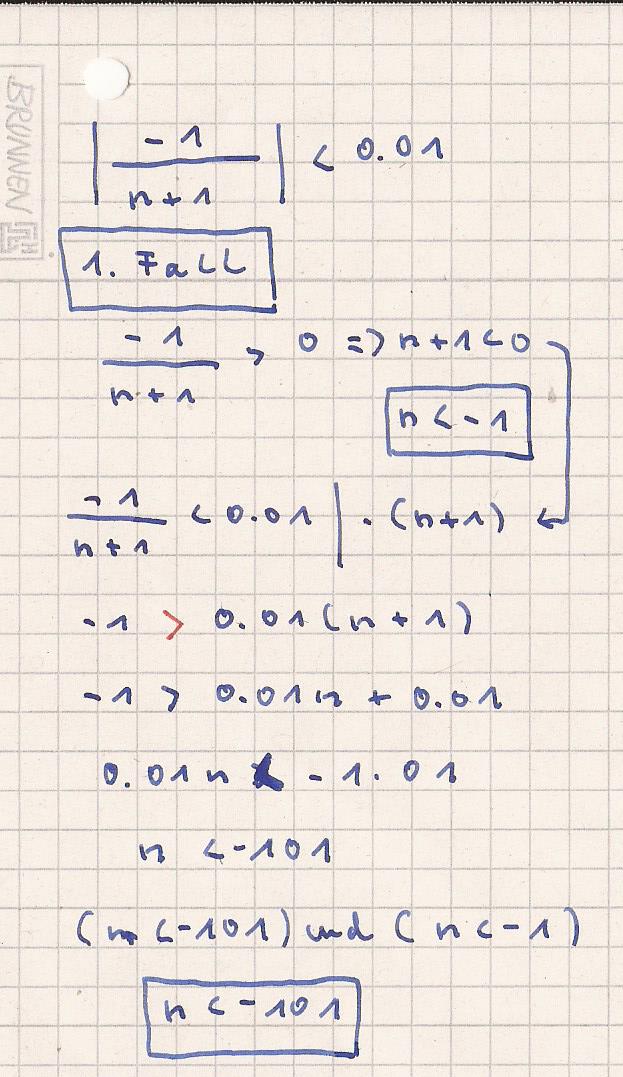 BRUNNEN
| -1 / n+1 | < 0.01
1. Fall
-1 / n+1 > 0 => n+1<0
n < -1
-1 / n+1 < 0.01 | · (n+1)
-1 > 0.01(n+1)
-1 > 0.01n + 0.01
0.01n < -1.01
n < -101
(n < -101) und (n < -1)
n < -101